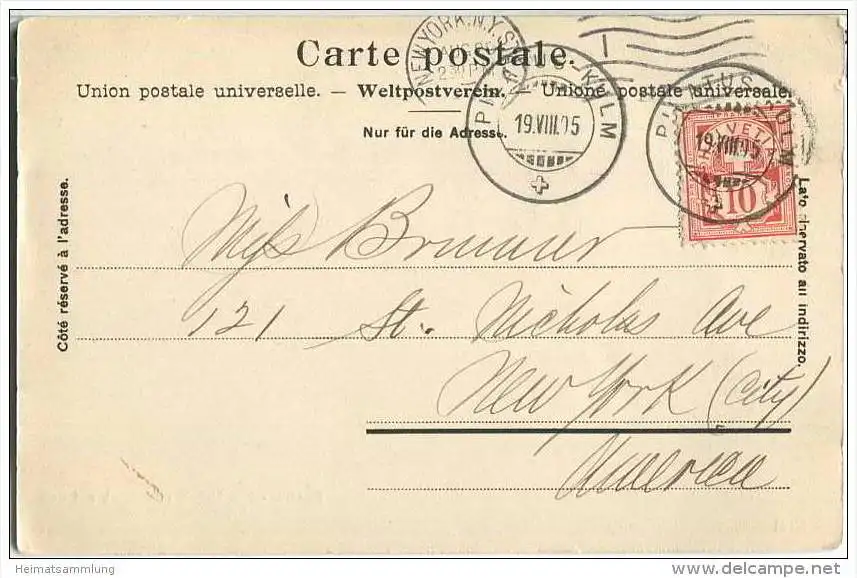 Carte postale.
Union postale universelle. — Weltpostverein. — Unione postale universale.
Nur für die Adresse.
NEW YORK, N.Y.
PILATUS-KULM
19.VIII.05
PILATUS-KULM
19.VIII.05
HELVETIA
10
Côté réservé à l'adresse.
Lato riservato all indirizzo.
Miss Brunner
121 St. Nicholas Ave
New York (City)
America
Heimatsammlung
www.delcampe.net